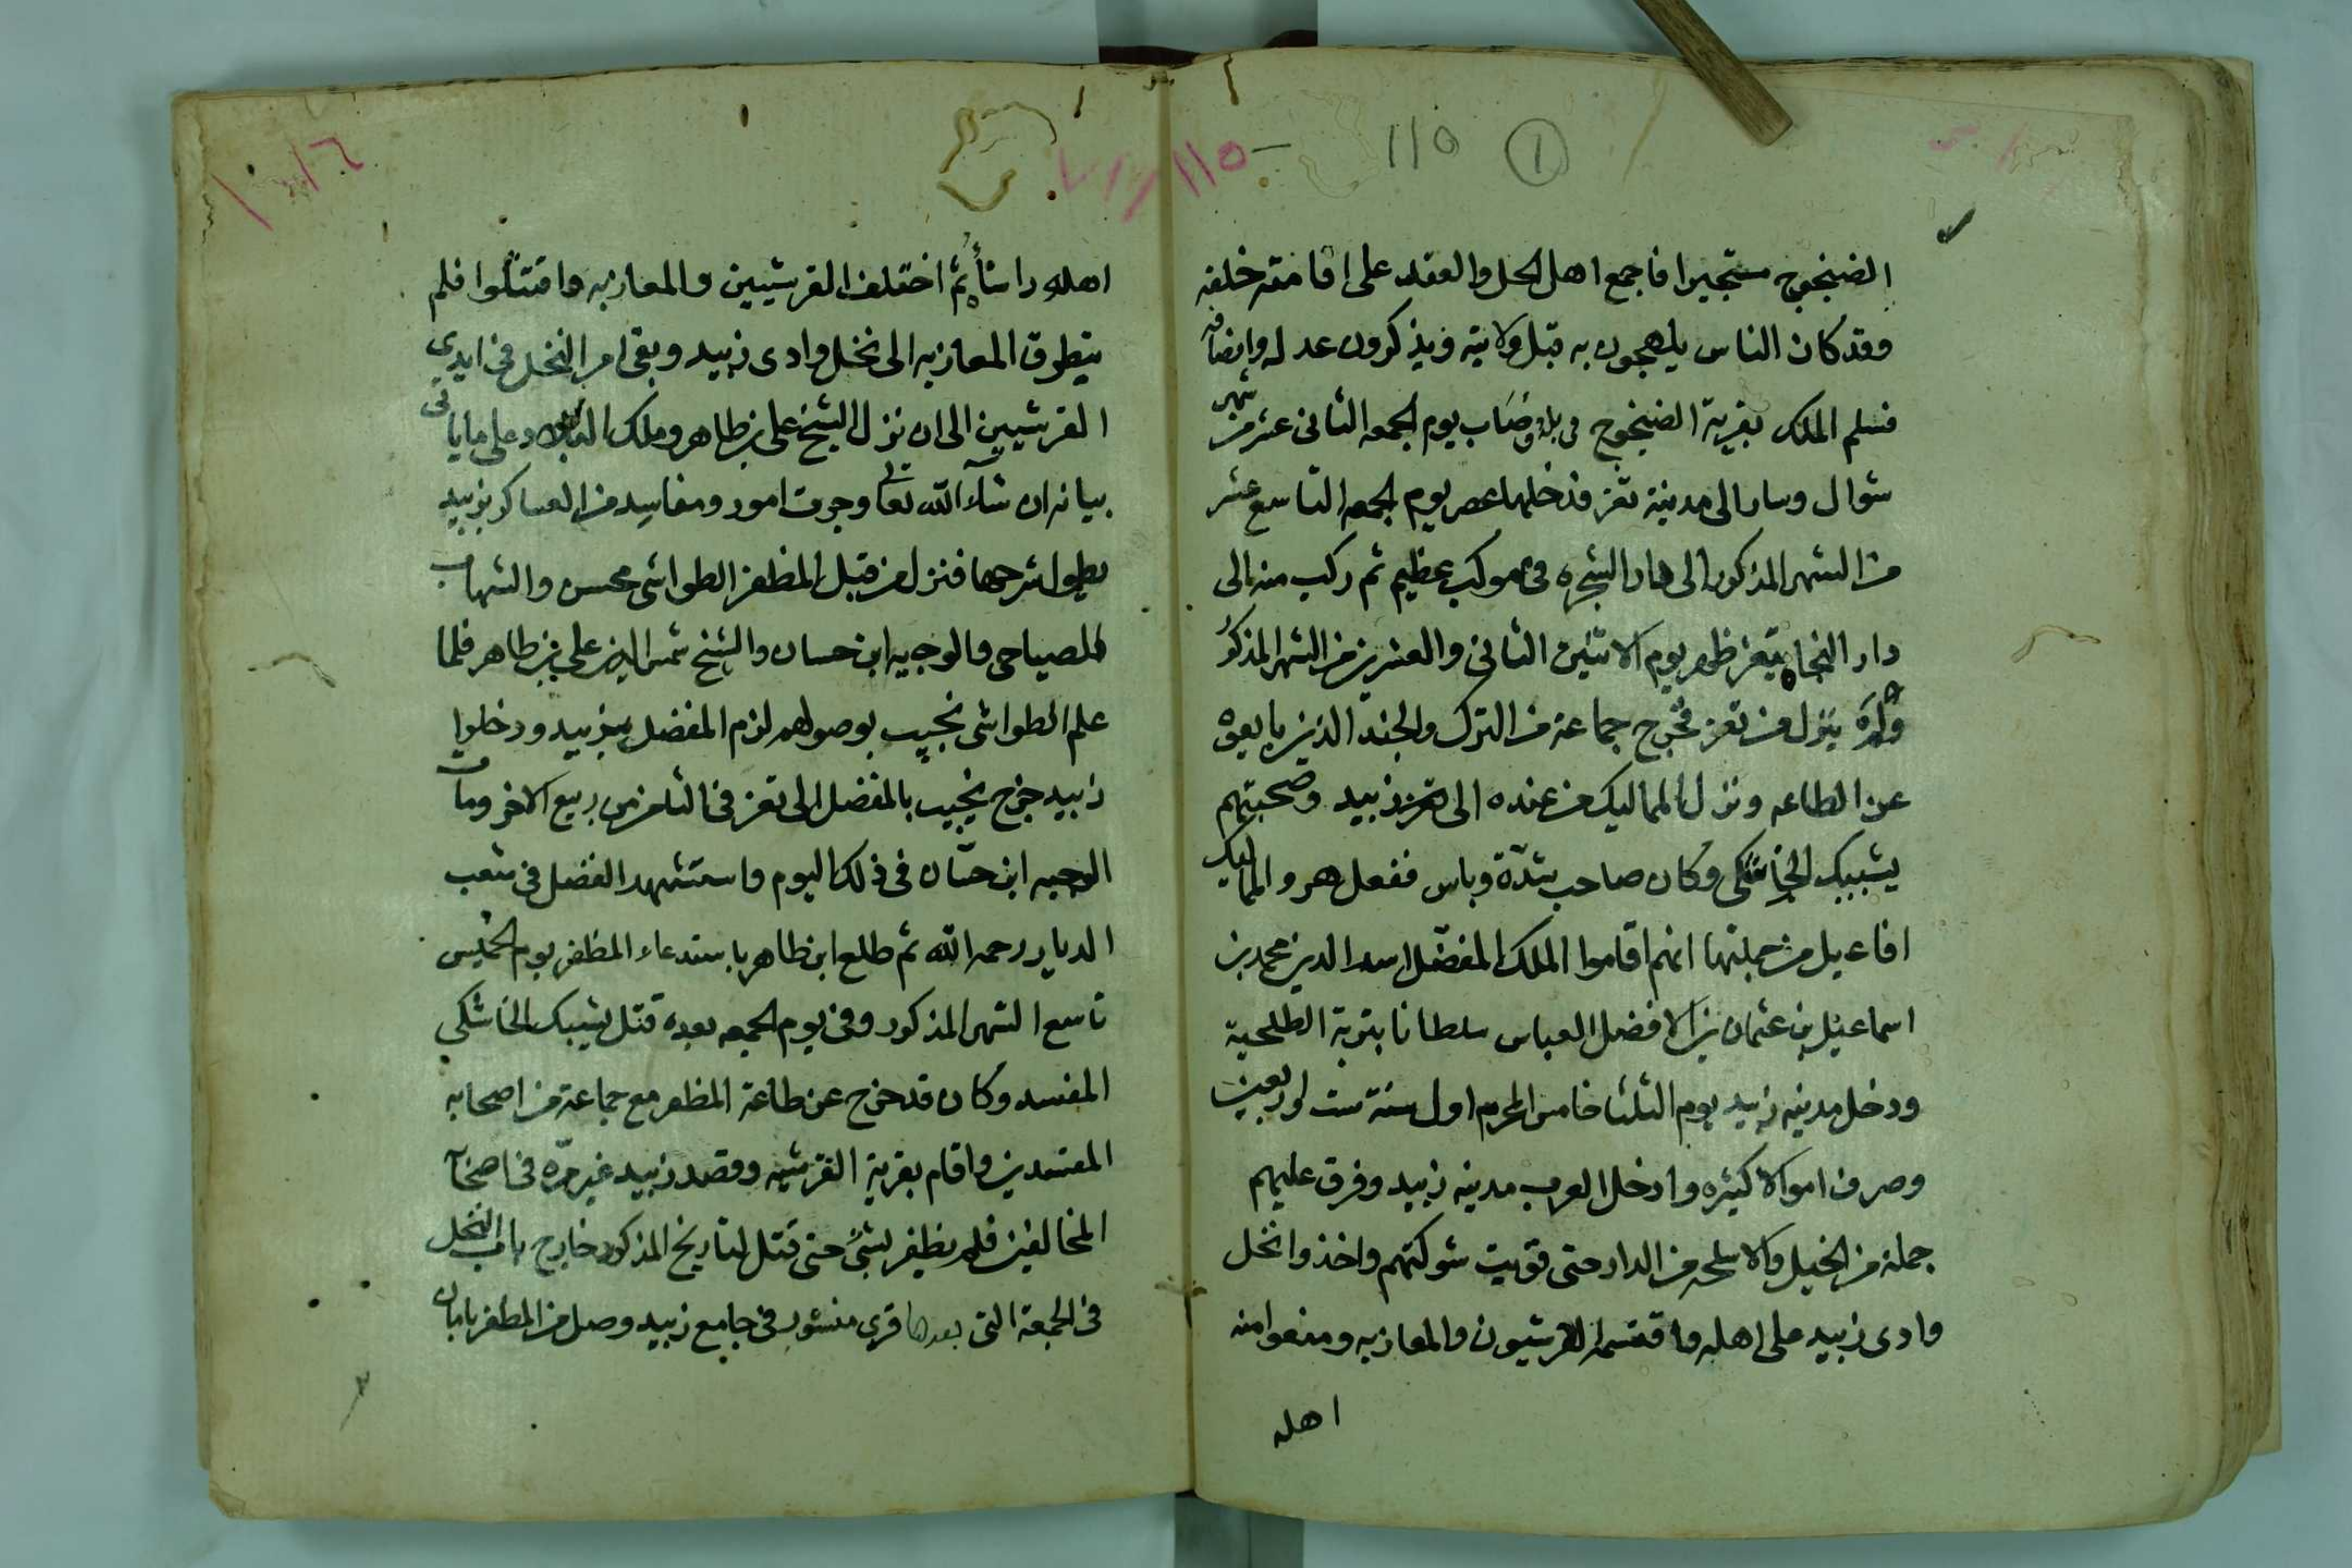 115 1
115
الضنجوج مستجيرا فاجمع اهل الحل والعقد على اقامته خلفه
وقد كان الناس يلهجون به قبل ولايته ويذكرون عدله وانصافه
فسلم الملك بقرية الضنجوج في بلد وصاب يوم الجمعه الثانى عشر من شهر
شوال وسار الى مدينة تعز فدخلها عصر يوم الجمعه التاسع عشر
من الشهر المذكور الى دار الشجره فى موكب عظيم ثم ركب منه الى
دار النجاه بتعز ظهر يوم الاثنين الثانى والعشرين من الشهر المذكور
ولم ينزل من تعز فخرج جماعة من الترك والجند الذين بايعوه
عن الطاعه ونزل المماليك من عنده الى زبيد وصحبتهم
يشبيك الخاشكى وكان صاحب شدّة وباس ففعل هو والمماليك
افاعيل من جملتها انهم اقاموا الملك المفضّل اسد الدين محمد بن
اسماعيل بن عثمان بن الافضل العباس سلطانا بتربة الطلحية
ودخل مدينه زبيد يوم الثلثا خامس المحرم اول سنة ست واربعين
وصرف اموالا كثيره وادخل العرب مدينه زبيد وفرق عليهم
جملة من الخيل والاسلحه من الدار حتى قويت شوكتهم واخذوا نخل
وادى زبيد على اهله واقتسمه القرشيون والمعازبه ومنعوا منه
اهله
اهله راسًا ثم اختلف القرشيين والمعازبه واقتتلوا فلم
يتطرق المعازبه الى نخل وادى زبيد وبقى امر النخل فى ايدي
القرشيين الى ان نزل الشيخ على بن طاهر وملك البلاد على ما ياتى
بيانه ان شاء الله تعالى وجرت امور ومفاسد من العساكر بزبيد
يطول شرحها فنزل من قبل المظفر الطواشى محسن والشهاب
المصباحى والوجيه ابن حسان والشيخ شمس الدين على بن طاهر فلما
علم الطواشى نجيب بوصولهم لزم المفضل بزبيد ودخلوا
زبيد خرج نجيب بالمفضل الى تعز فى الثامن من ربيع الاخر ومات
الوجيه ابن حسّان فى ذلك اليوم واستشهد الفضل فى شعب
الديار رحمه الله ثم طلع ابن طاهر باستدعاء المظفر يوم الخميس
تاسع الشهر المذكور وفى يوم الجمعه بعده قتل يشبك الخاشكي
المفسد وكان قد خرج عن طاعة المظفر مع جماعة من اصحابه
المفسدين واقام بقرية القرشيه وقصد زبيد غير مرّه فى اصحابه
المخالفين فلم يظفر بشئ حتى قتل لتاريخ المذكور خارج باب النخل
فى الجمعة التى بعدها قرى منشور فى جامع زبيد وصل من المظفر بامان